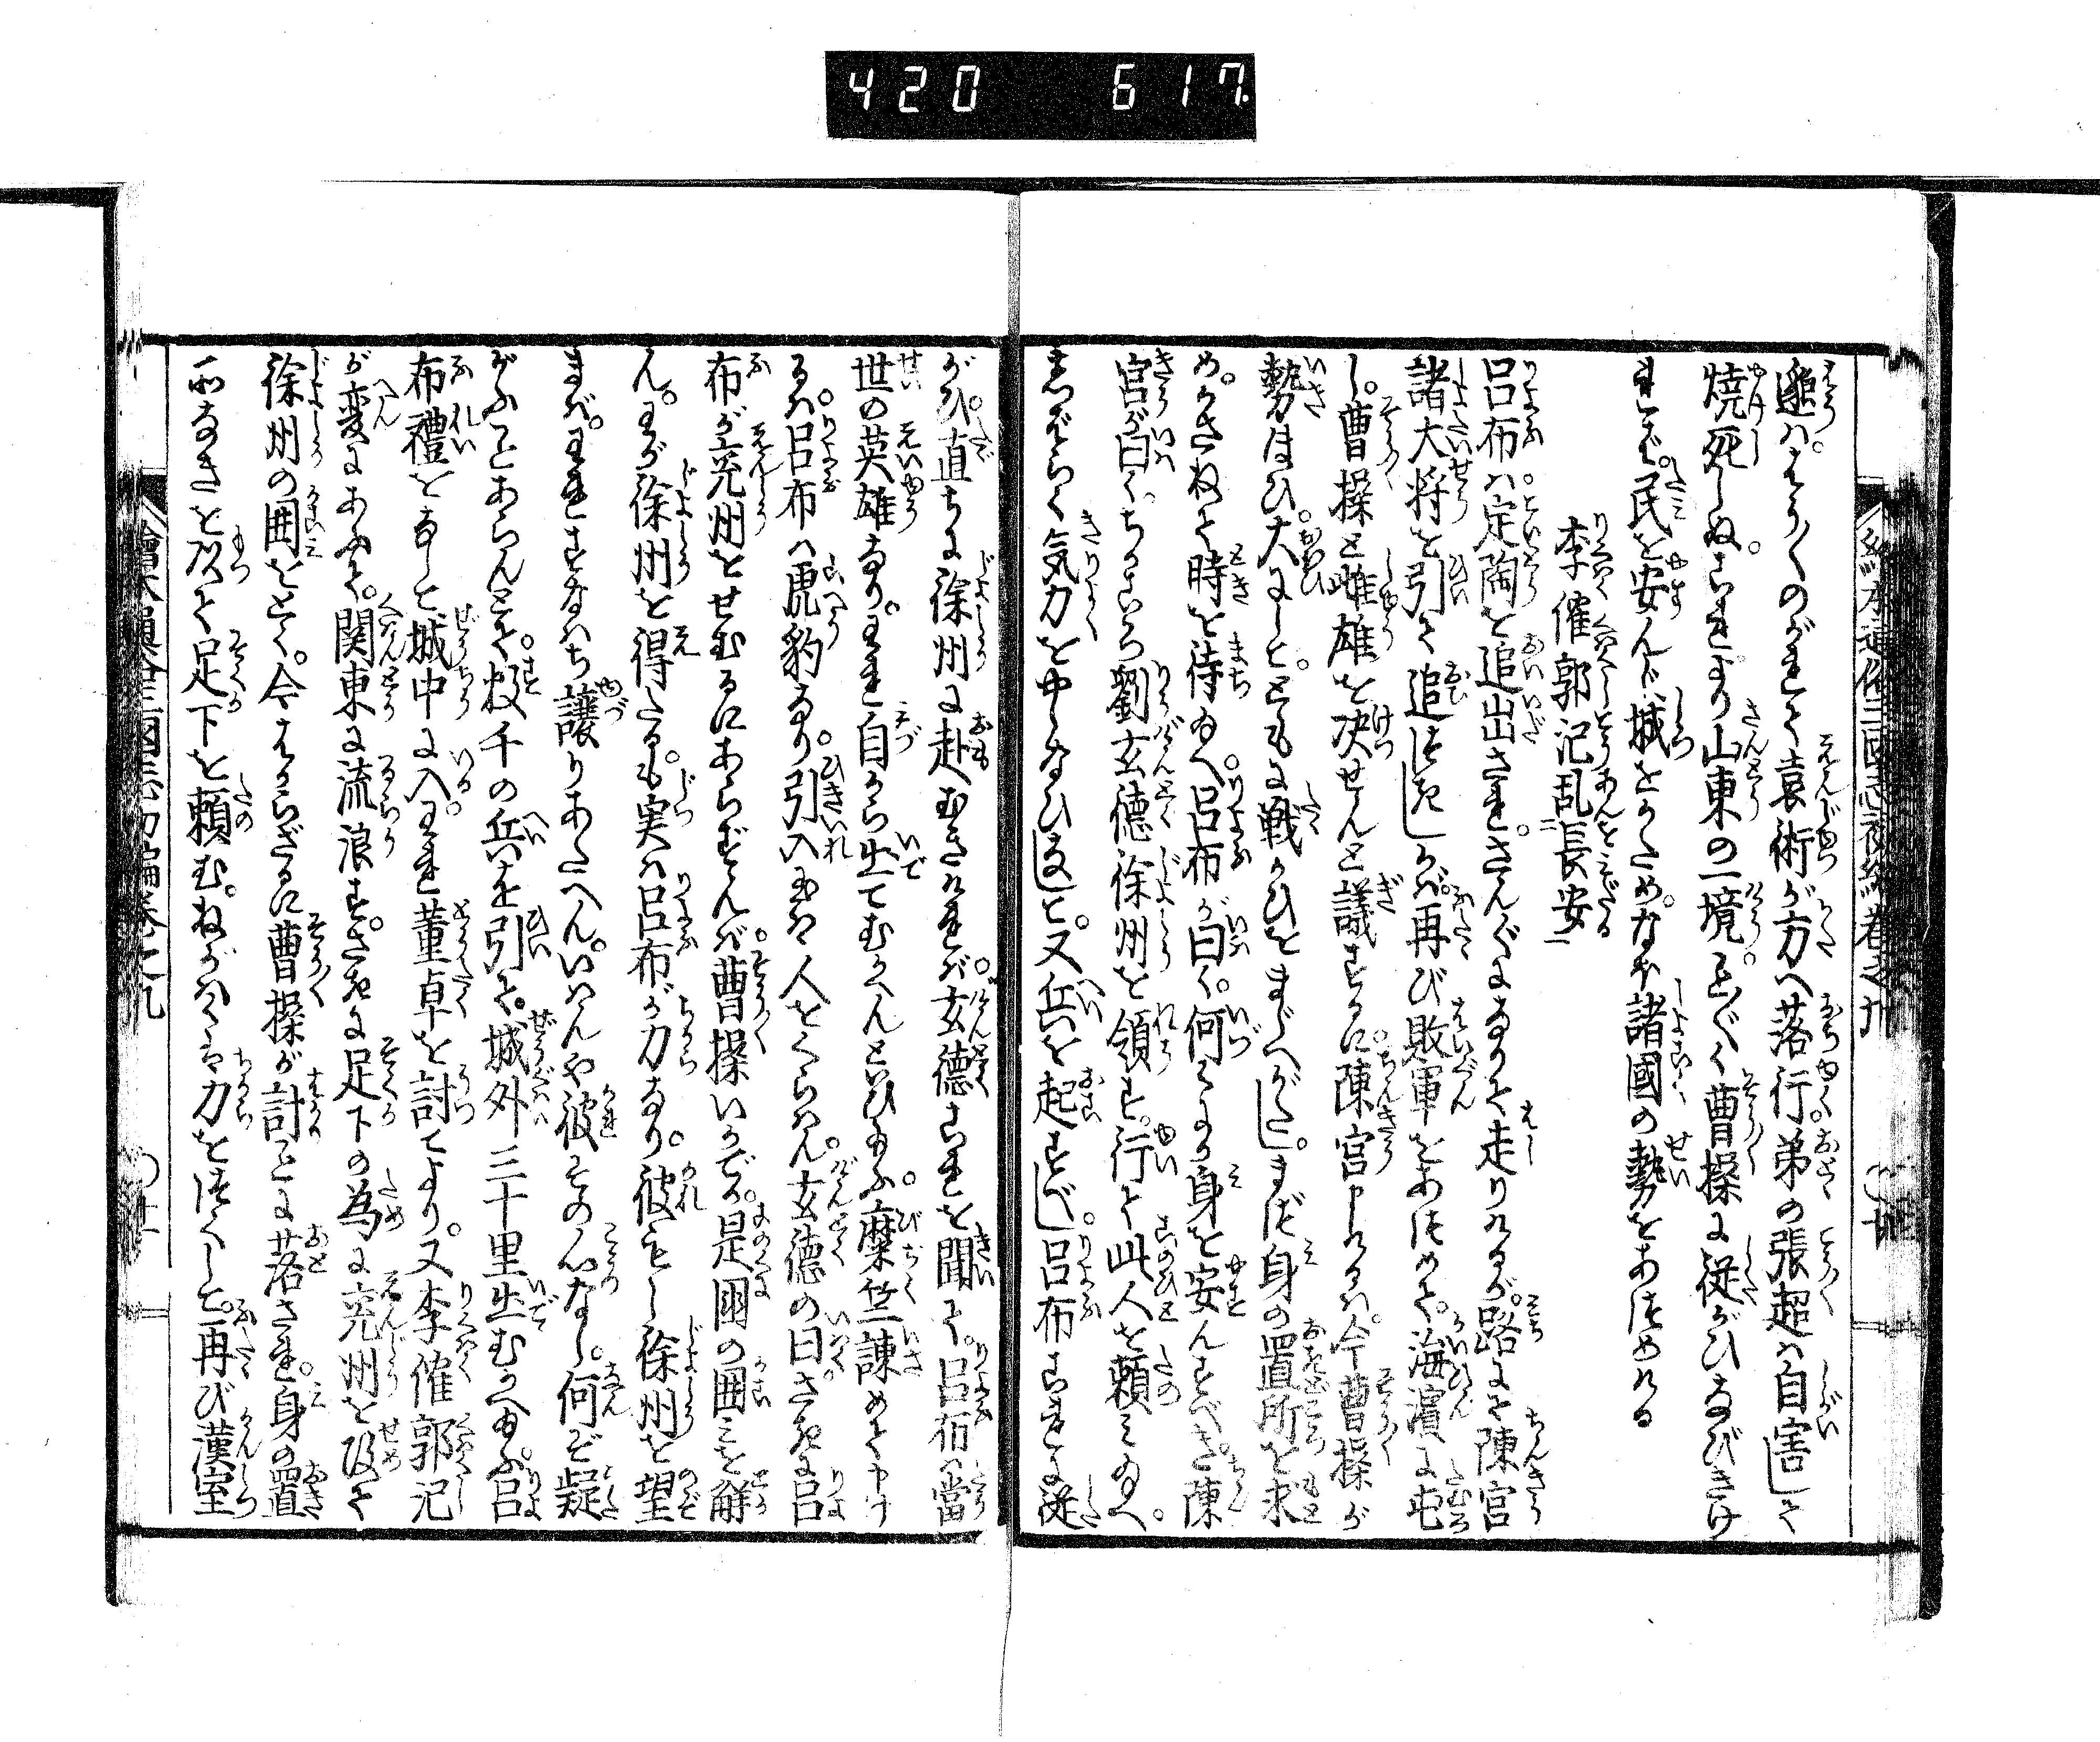 420 617
邈ハはう〳〵のがれて袁術が方へ落行弟の張超ハ自害して
焼死しぬ。これより山東の一境こと〴〵く曹操に従がひなびきけ
れバ。民を安んじ城をかため。なほ諸國の勢をあつめける
李傕郭汜乱長安
呂布ハ定陶を追出され。さん〴〵になりて走りけるが。路にて陳宮
諸大将を引て追つきしかバ。再び敗軍をあつめて。海濱に屯
し。曹操と雌雄を决せんと議するに。陳宮申しけるハ。今曹操が
勢ほひ。大にして。ともに戦かひをまじへがたし。まづ身の置所を求
め。かさねて時を待給へ。呂布が曰く。何くにか身を安んずべき。陳
宮が曰く。ちかごろ劉玄徳徐州を領す。行て此人を頼み給へ。
しばらく気力をやしなひ得て。又兵を起すべし。呂布これに従
がひ。直ちに徐州に赴むきければ。玄徳これを聞て。呂布ハ當
世の英雄なり。われ自から出てむかへんといひ給ふ。糜竺諌めて申け
るハ。呂布ハ虎豹なり。引入給ハヾ人をくらはん。玄徳の曰。さきに呂
布が兗州をせむるにあらずんバ。曹操いかでか。是圍の囲ミを解
ん。わが徐州を得たるも実ハ呂布が力なり。彼もし徐州を望
まバ。われすなハち譲りあたへん。いはんや彼その心なし。何ぞ疑
がふことあらんとて。数千の兵を引て。城外三十里出むかへ給ふ。呂
布禮をなして城中に入。われ董卓を討てより。又李傕郭汜
が変にあふて。関東に流浪す。さきに足下の為に兗州を攻て
徐州の囲をとく。今はからざるに曹操が計ことに落され。身の置
所なきを以て足下を頼む。ねがハくハ力をつくして。再び漢室